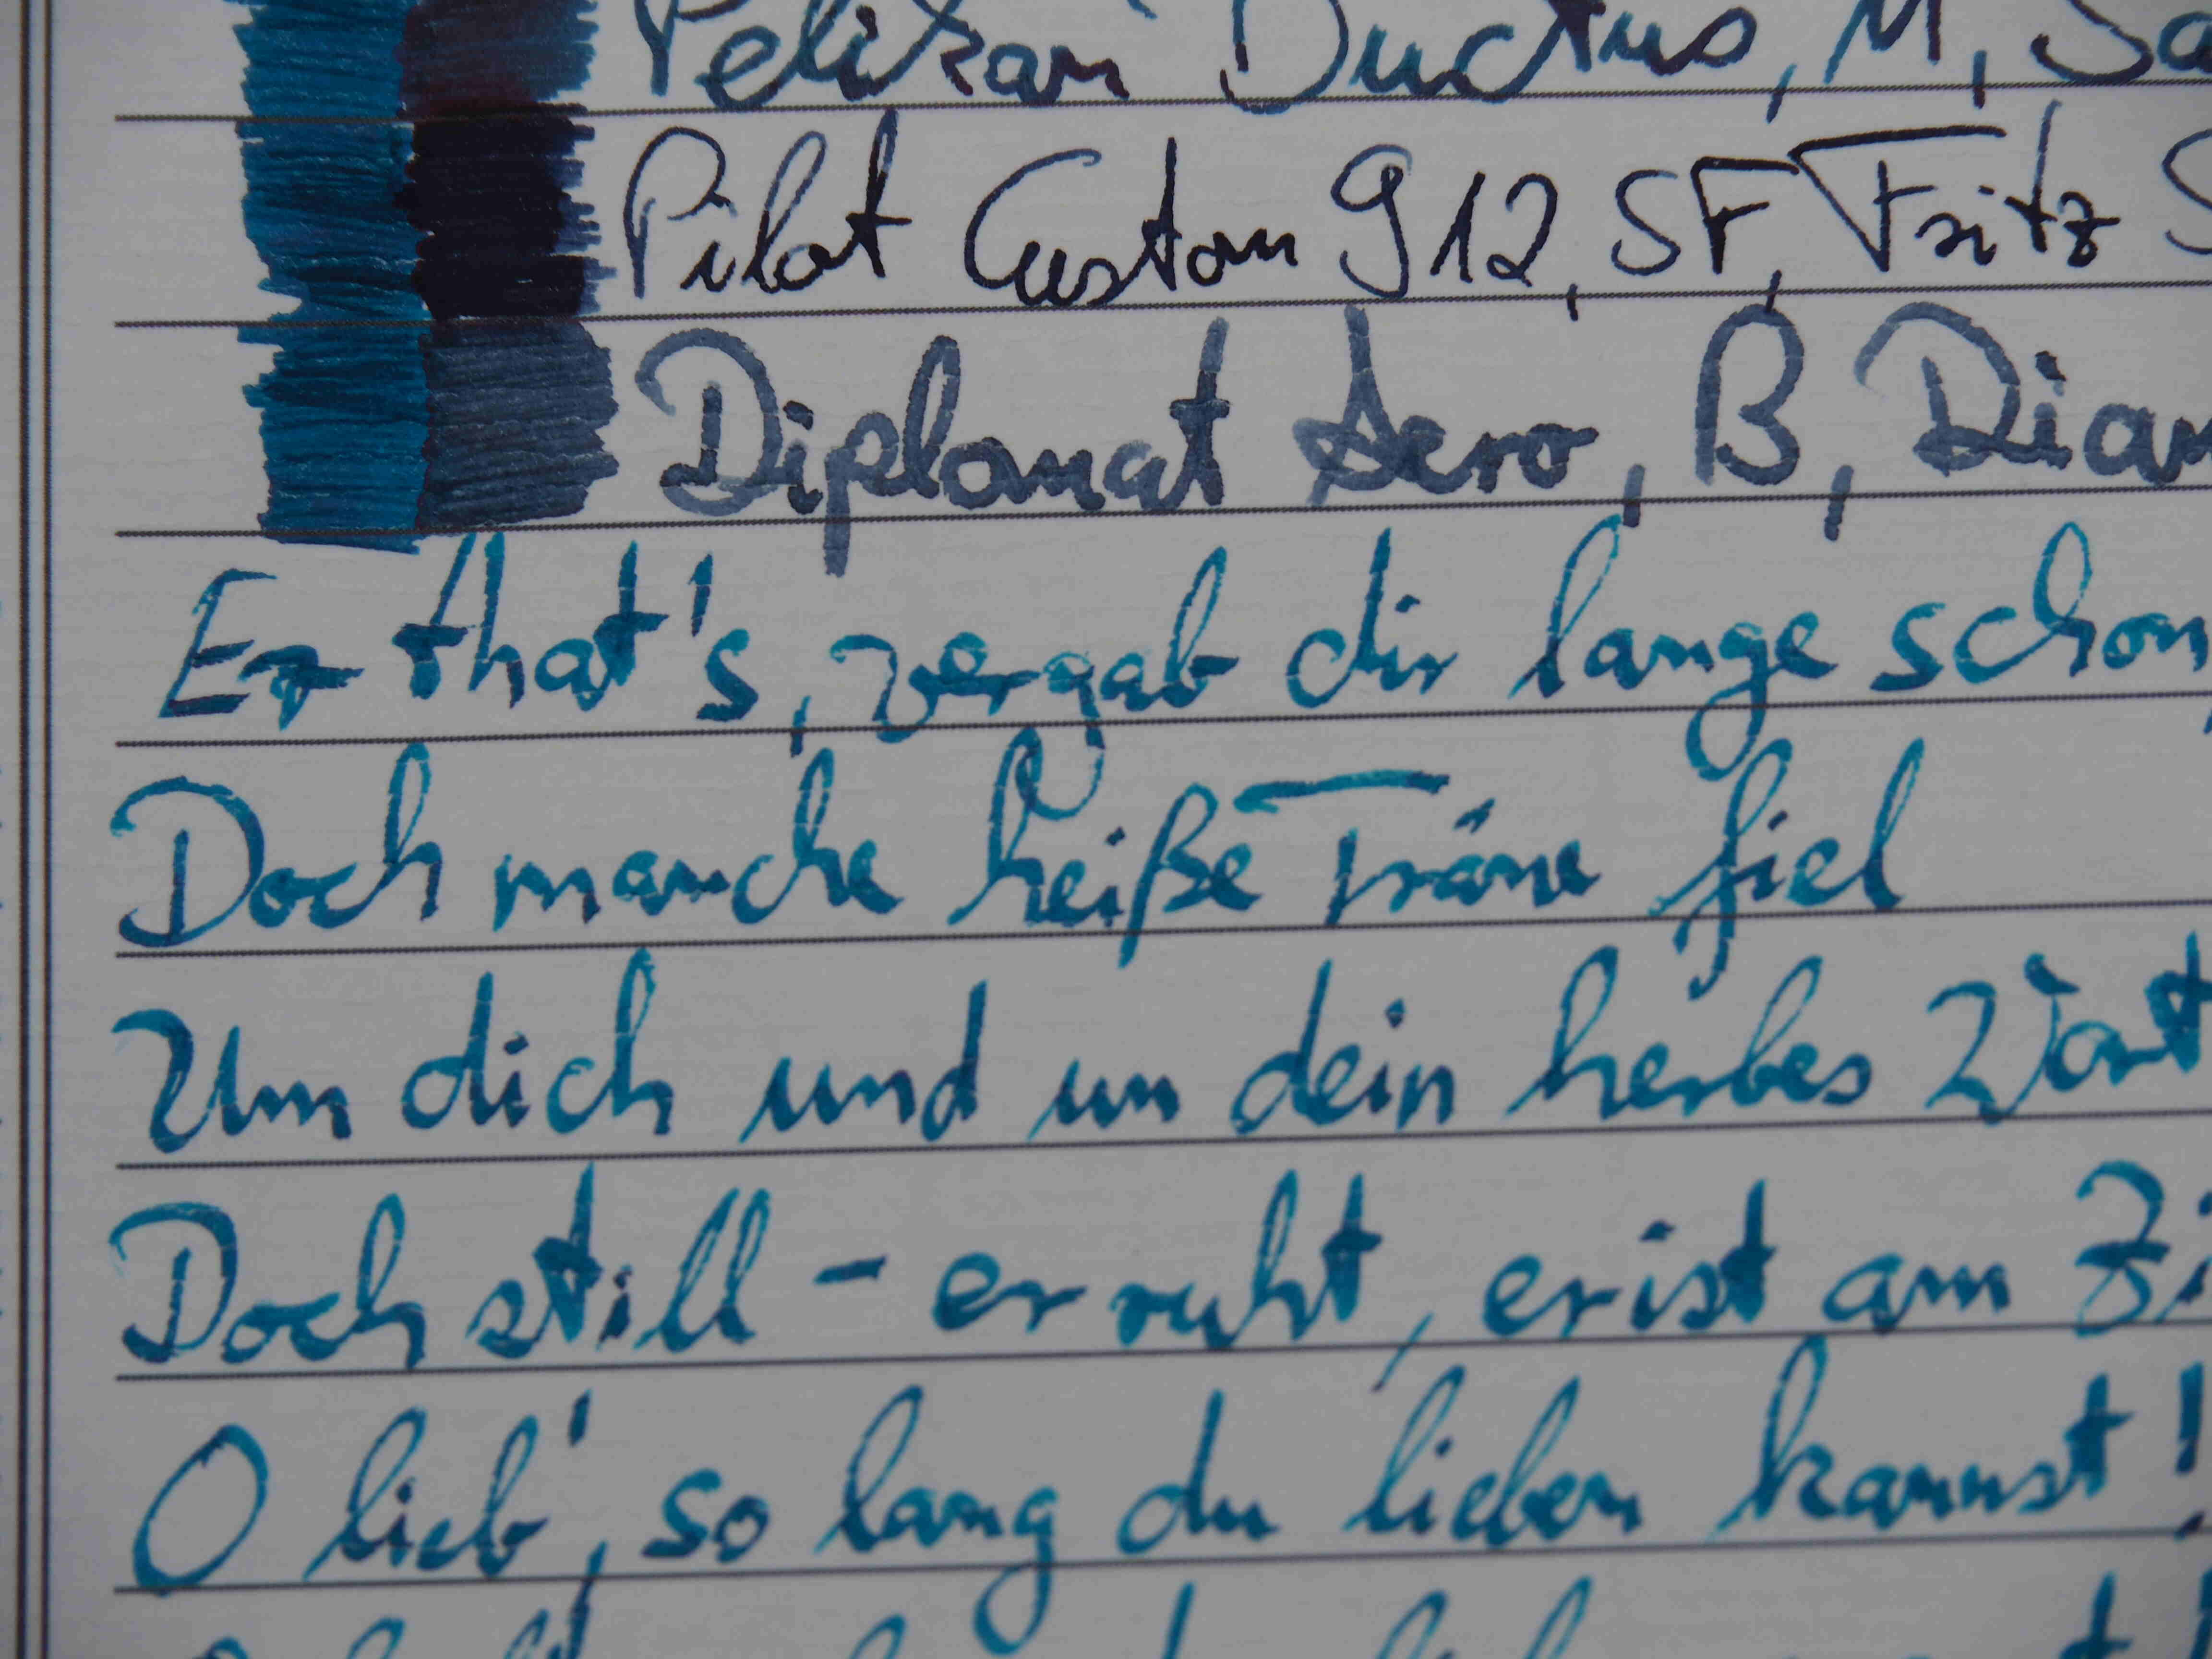 Pelikan Ductus, M, Sa
Pilot Custom 912, SF, Fritz S
Diplomat Aero, B, Diam
Er that's, vergab dir lange schon,
Doch manche heiße Träne fiel
Um dich und um dein herbes Wort
Doch still - er ruht, er ist am Zi
O lieb', so lang du lieben kannst!